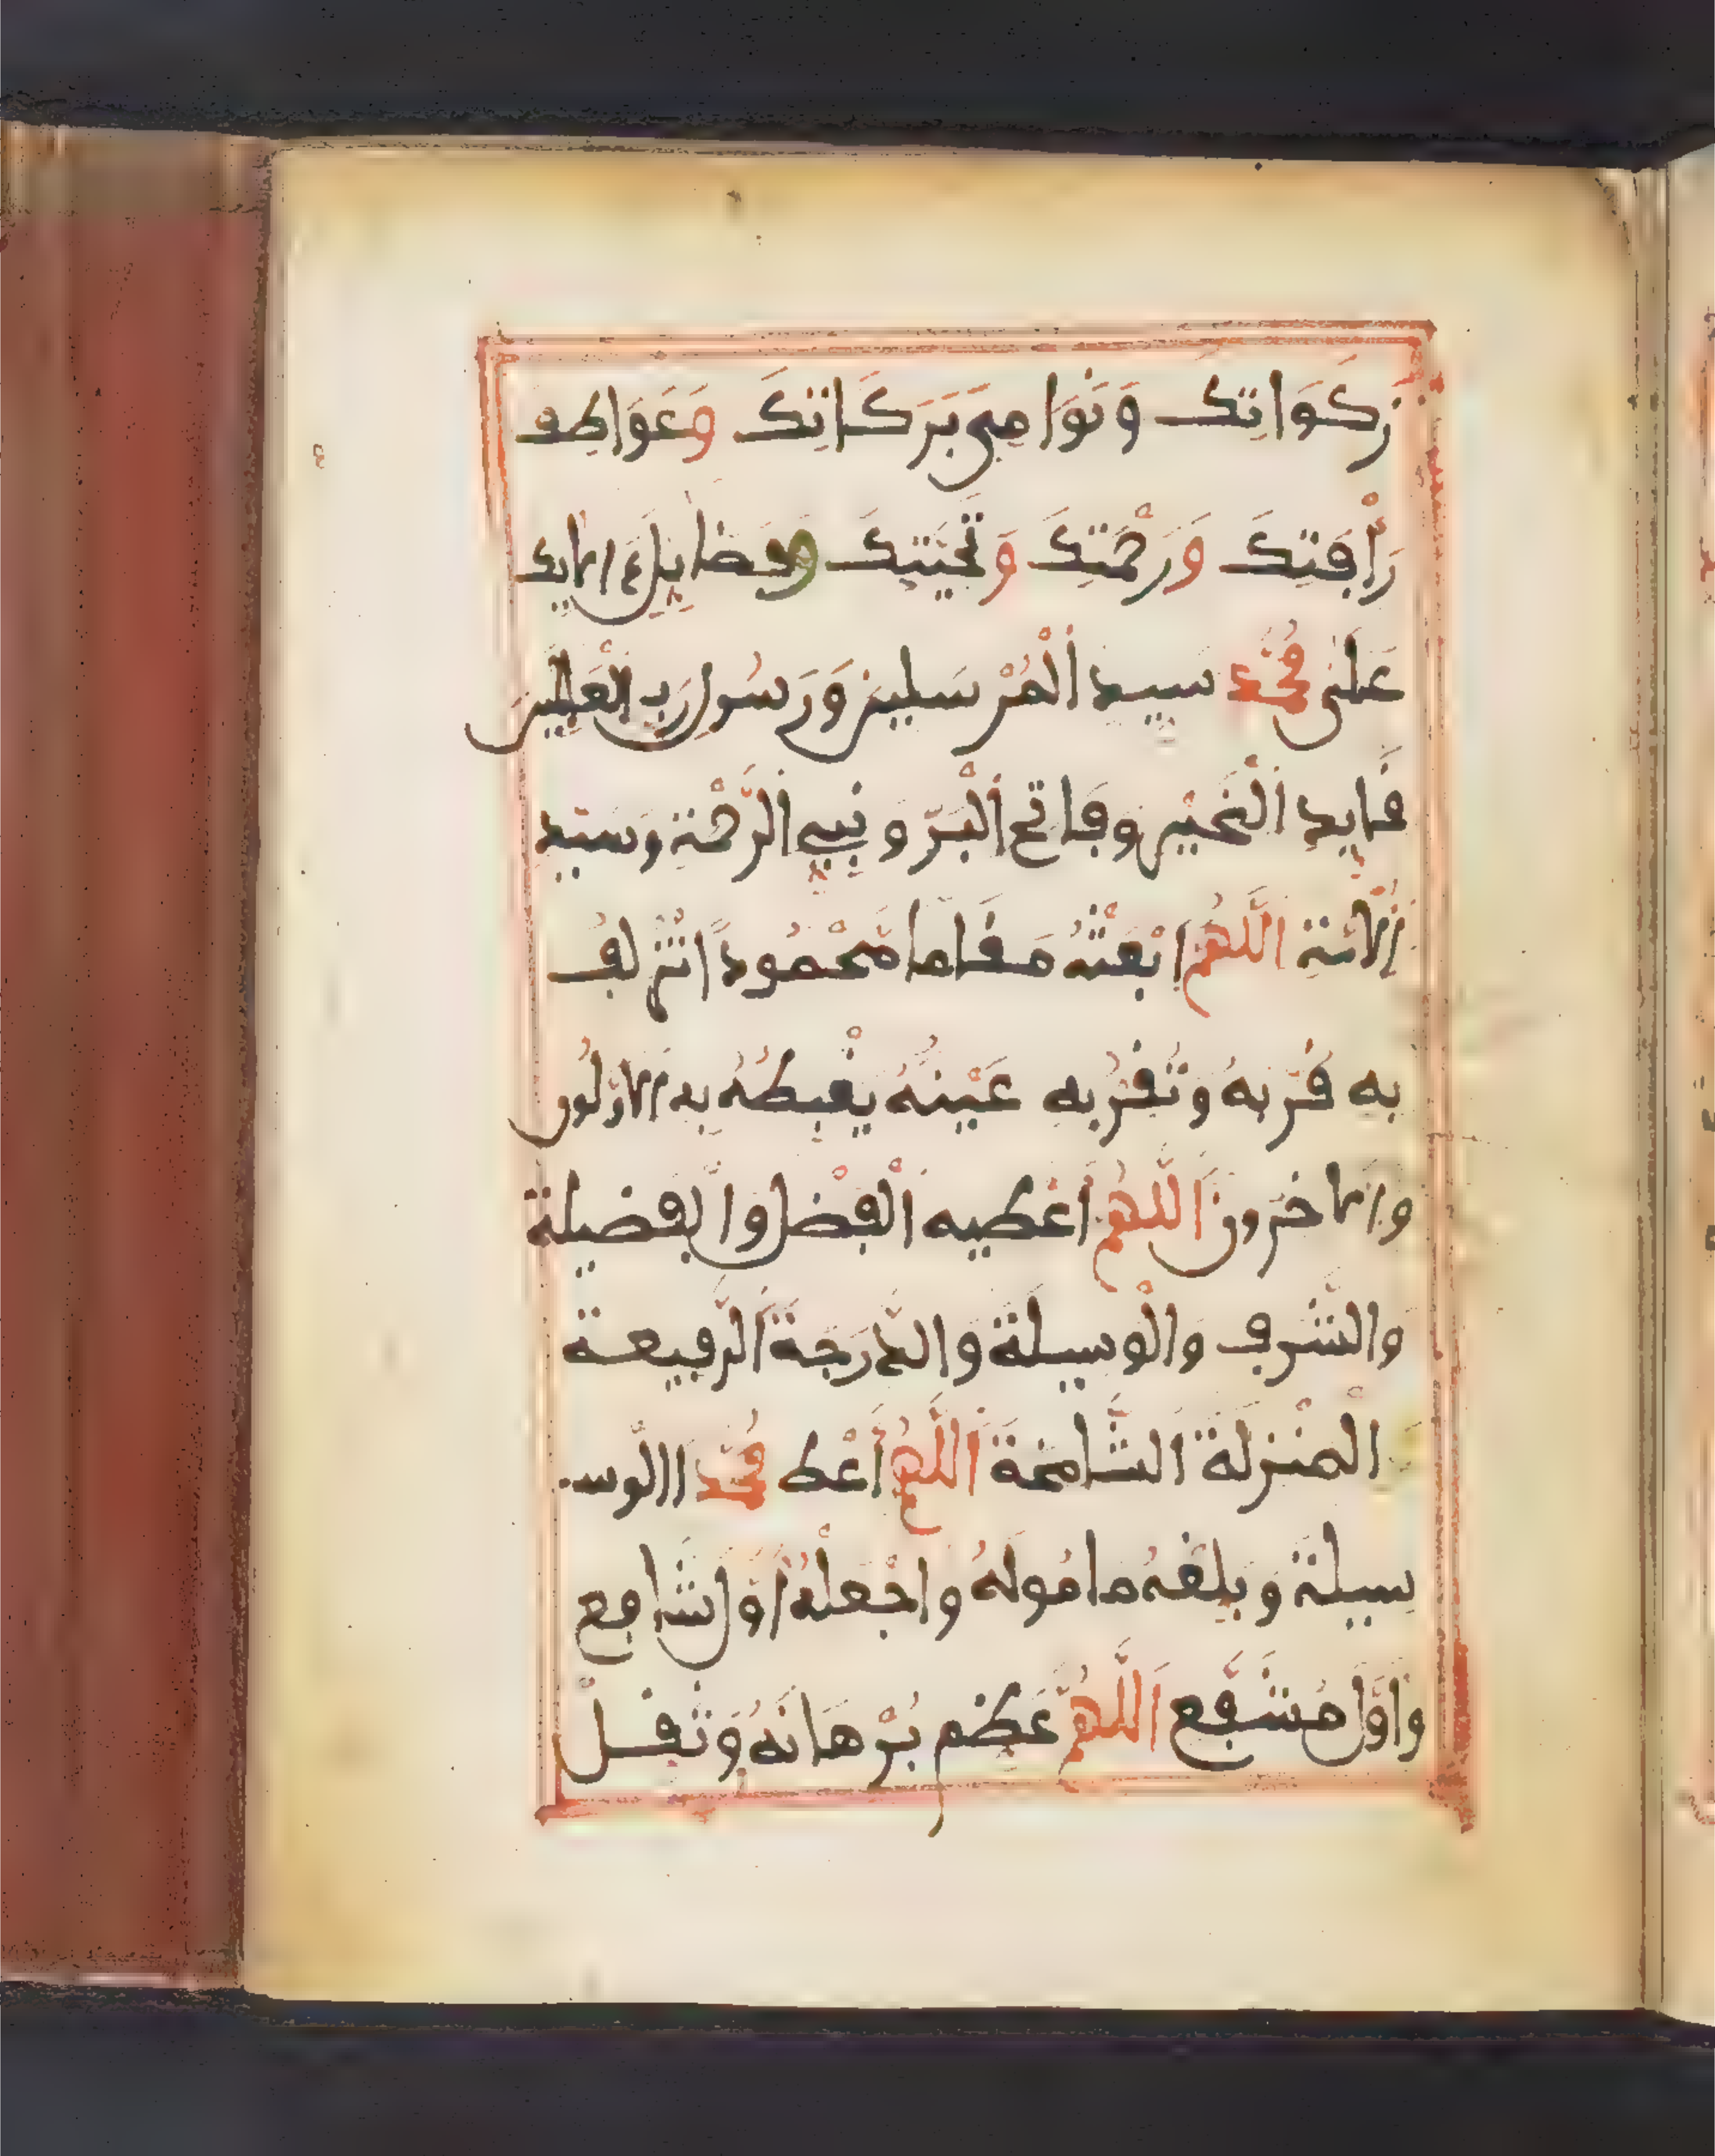 زَكَوَاتِكَ وَنَوَامِيَ بَرَكَاتِكَ وَعَوَاطِفَ
رَأْفَتِكَ وَرَحْمَتِكَ وَتَحِيَّتِكَ وَفَضَايِلَ ءَالَايِكَ
عَلَى مُحَمَّد سَيِّدِ الْمُرْسَلِينَ وَرَسُولِ رَبِّ الْعَلَمِينَ
قَايِدِ الْخَيْرِ وَفَاتِحِ الْبَرِّ وَنَبِيِّ الرَّحْمَةِ وَسَيِّدِ
الْأُمَّةِ اللَّهُمَّ ابْعَثْهُ مَقَاما مَّحْمُوداً تُزْلِفُ
بِهِ قُرْبَهُ وَتُقِرُّ بِهِ عَيْنَهُ يَغْبِطُهُ بِهِ الْأَوَّلُونَ
وَالْأَاخِرُونَ اللَّهُمَّ أَعْطِيهِ الْفَضْلَ وَالْفَضِيلَةَ
وَالشَّرَفَ وَالْوَسِيلَةَ وَالدَّرَجَةَ الرَّفِيعَة
الْمَنْزِلَةَ الشَّامِخَةَ اللَّهُمَّ أَعْطِ مُحَمَّد االْوَسِ
سِيلَةَ وَبَلِّغْهُ مَامُولَهُ وَاجْعَلْهُ أَوَّلَ شَافِع
وَأَوَّلَ مُشَفَّع اللَّهُمَّ عَظِّم بُرْهَانَهُ وَثَقِّلْ